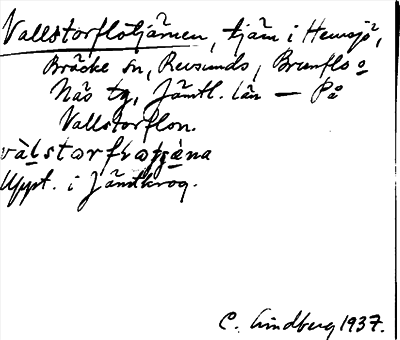 Vallstorflotjärnen, tjärn i Hemsjö,
Bräcke sn, Revsunds, Brunflo o
Näs tg, Jämtl. län — På
Vallstorflon.
Uppt. i Jämtkrog.
C. Lindberg 1937.